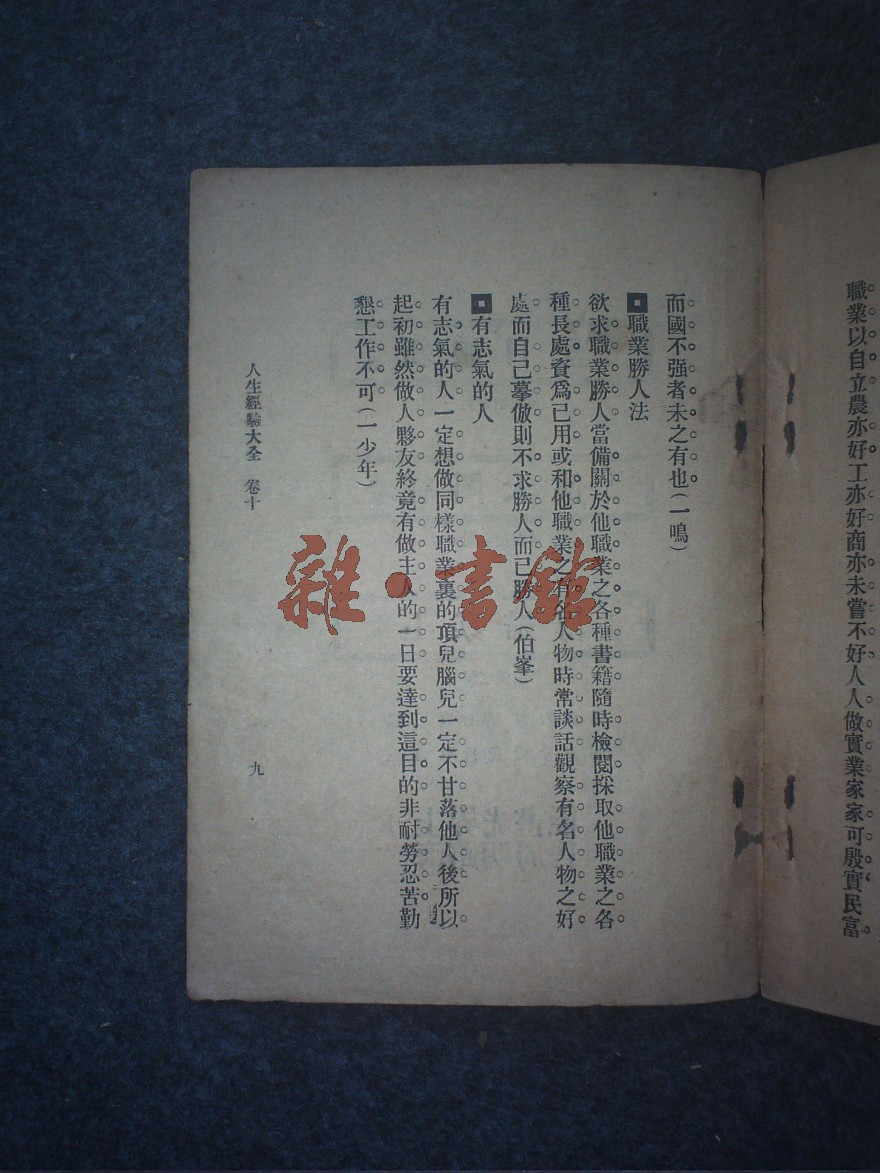 職業以自立農亦好工亦好商亦未嘗不好人人做實業家家可殷實民富
而國不强者未之有也(一鳴)
職業勝人法
欲求職業勝人當備關於他職業之各種書籍隨時檢閱採取他職業之各
種長處資爲己用或和他職業之有名人物時常談話觀察有名人物之好
處而自己摹倣則不求勝人而已勝人(伯峯)
有志氣的人
有志氣的人一定想做同樣職業裏的頂兒腦兒一定不甘落他人後所以
起初雖然做人夥友終竟有做主人的一日要達到這目的非耐勞忍苦勤
懇工作不可(一少年)
人生經驗大全 卷十
九
雜·書館